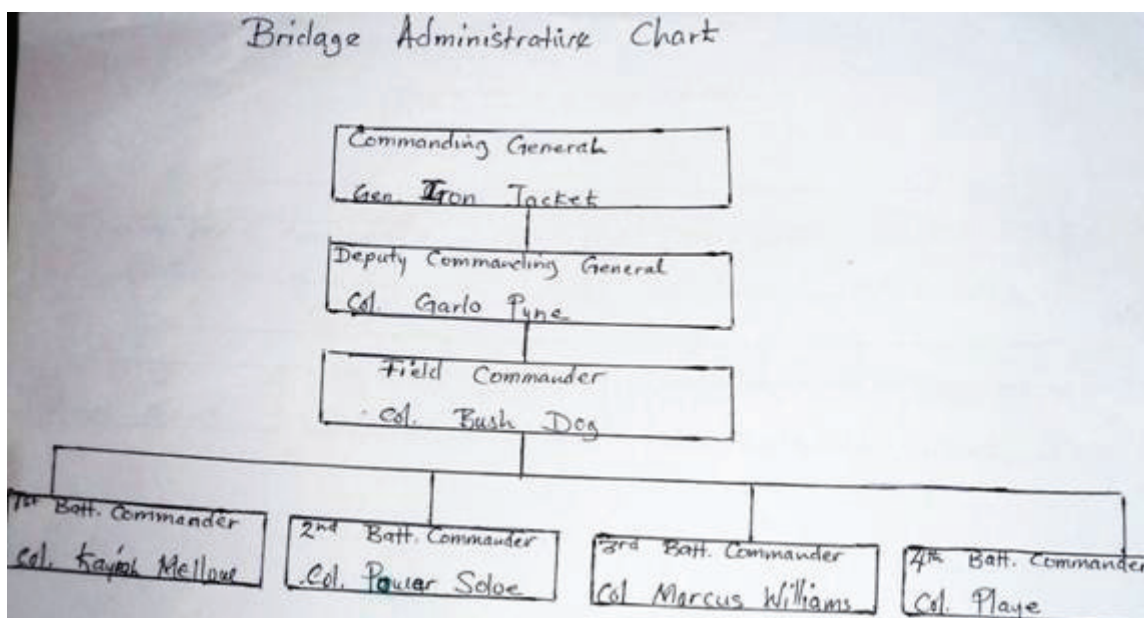 Bridage Administrative Chart
Commanding General
Gen. Iron Jacket
Deputy Commanding General
Col. Garlo Pyne
Field Commander
Col. Bush Dog
1st Batt. Commander
Col. Mellowe
2nd Batt. Commander
Col. Power Soloe
3rd Batt. Commander
Col Marcus Williams
4th Batt. Commander
Col. Playe